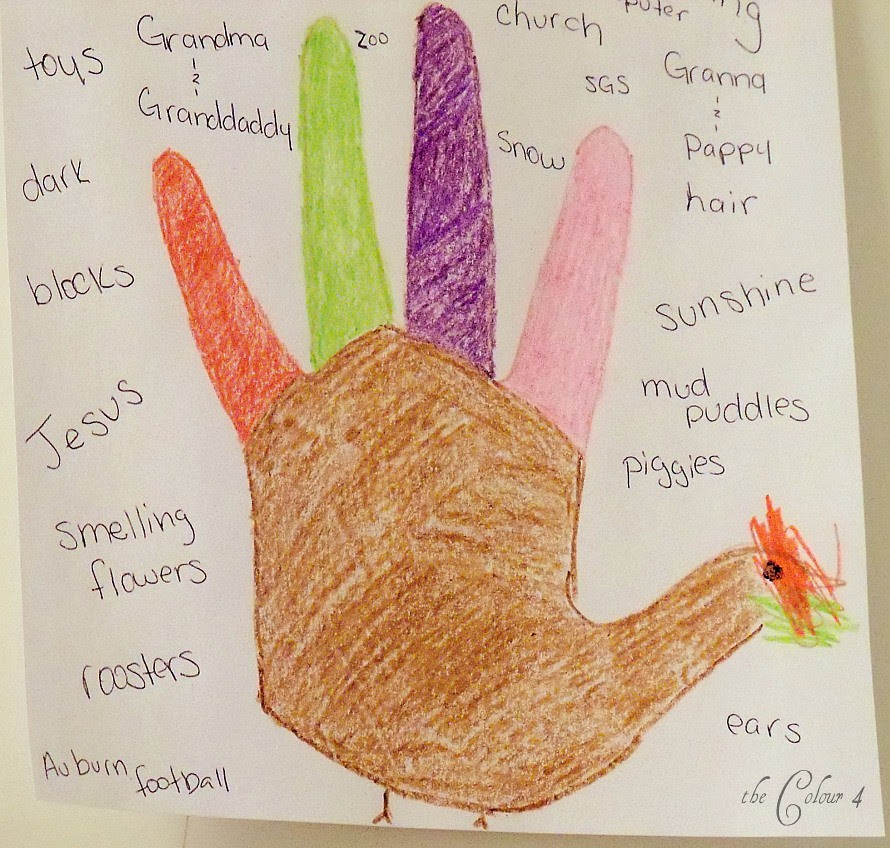 toys
Grandma
&
Granddaddy
zoo
church
sGs
Granna
&
Pappy
snow
hair
dark
blocks
sunshine
Jesus
mud
puddles
piggies
smelling
flowers
roosters
ears
Auburn football
the Colour 4